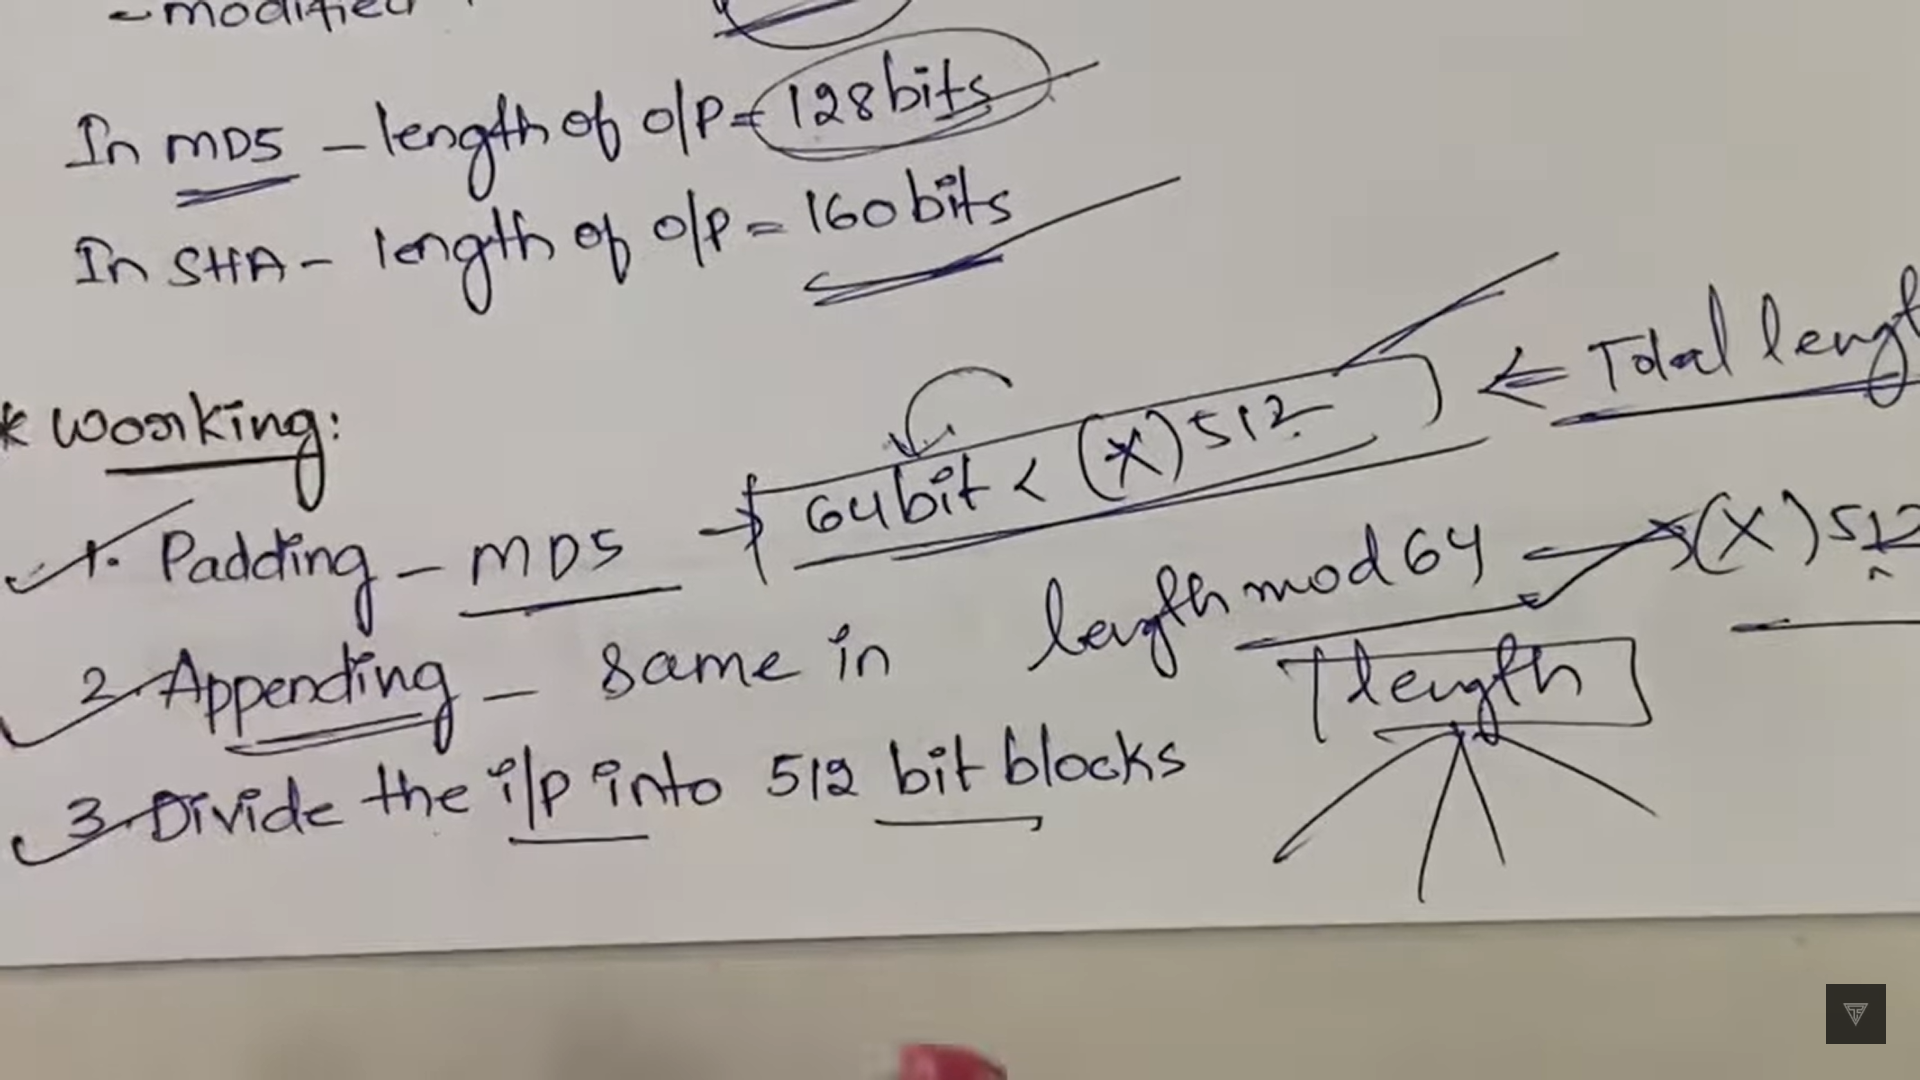 - modified
In MD5 - length of o/p = 128 bits
In SHA - length of o/p = 160 bits
* Working:
64 bit < (X) 512 ← Total lengt
1. Padding - MD5 →
2. Appending - Same in length mod 64 → (X) 512
length
3. Divide the i/p into 512 bit blocks